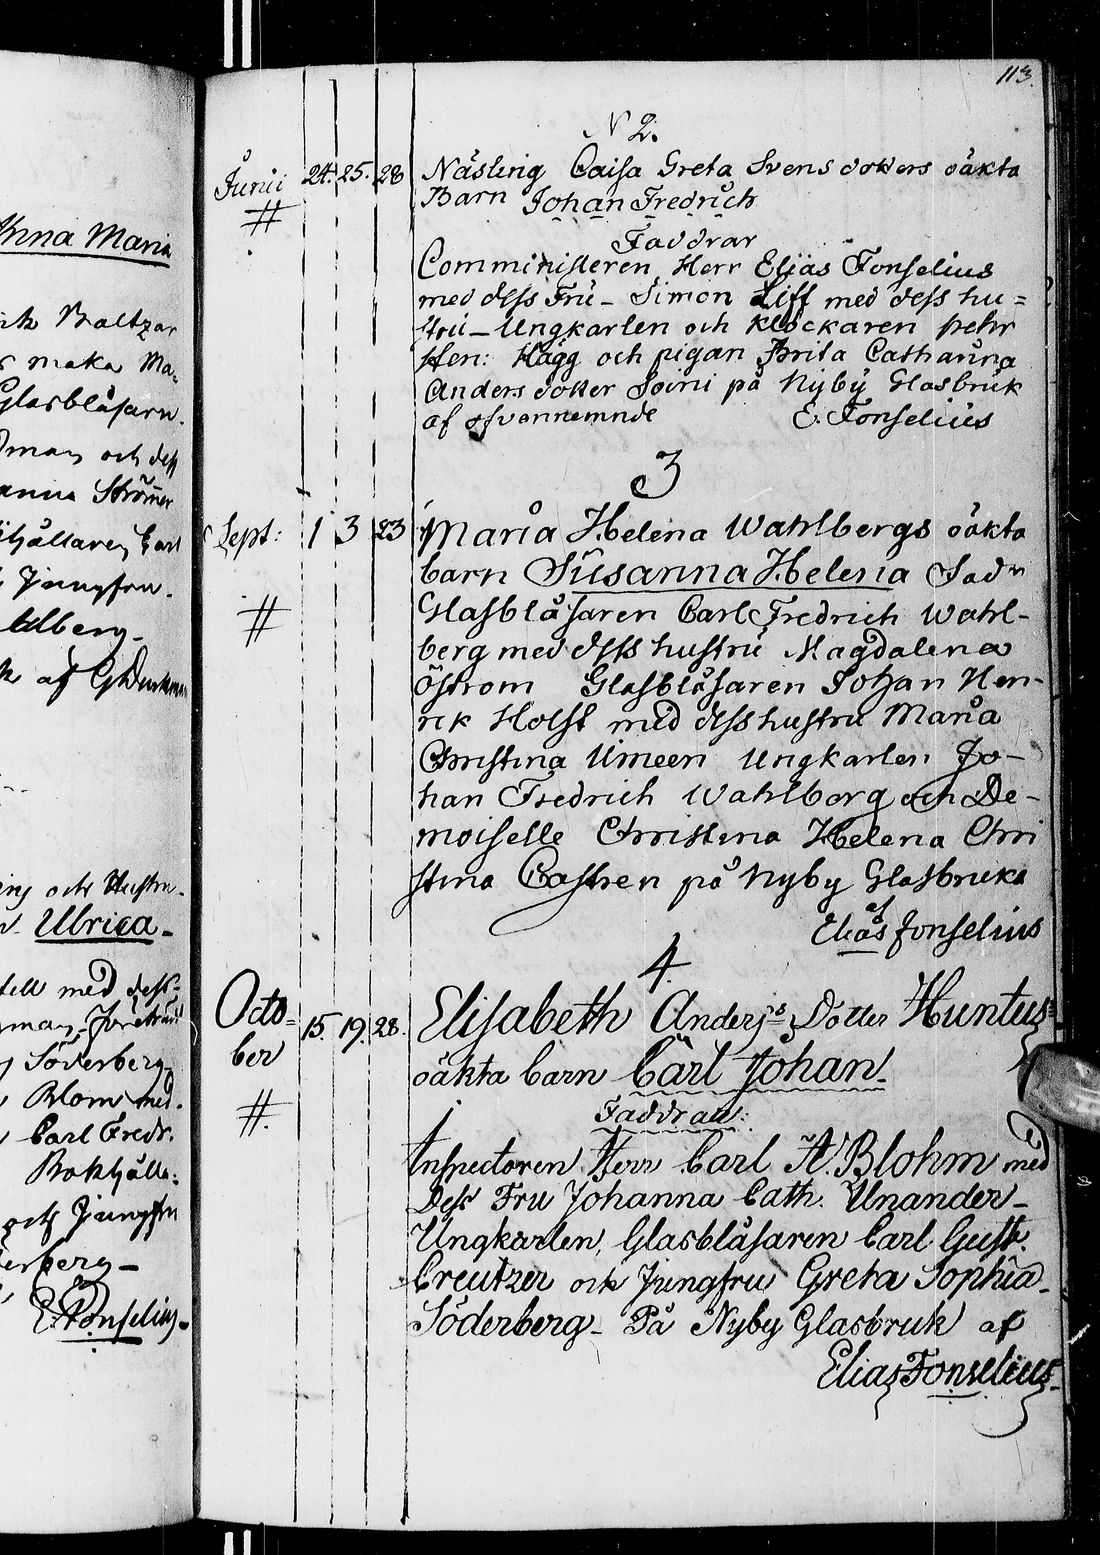 Anna Maria
Baltzar
maka Ma-
Glasblåsarn
och dess
Strömer
Carl
Jungfru
af
och Hustru
Ulrica
med dess
Söderberg
Blom med
Carl Fredr.
Bokhålla:
och Jungfru
E. Fonselius
113.
N 2.
Junii 24. 25. 28 Näsling Caisa Greta Svens doters oäkta
# Barn Johan Fredrich
Faddrar
Comministeren Herr Elias Fonselius
med dess Fru - Simon Liff med dess hu=
stru - Ungkarlen och klockaren pehr
Hen: Hägg och pigan Brita Catharina
Anders doter Soini på Nyby Glasbruk
af ofvannemnde E. Fonselius
3
Sept: 1 3 23 Maria Helena Wahlbergs oäkta
barn Susanna Helena Fadr
# Glasblåsaren Carl Fredrich Wahl-
berg med dess hustru Magdalena
Öström Glasblåsaren Johan Hen-
rik Holst med dess hustru Maria
Christina Umeen Ungkarlen Jo-
han Fredrich Wahlborg och De-
moiselle Christina Helena Chri
stina Castren på Nyby Glasbruk
af
Elias Fonselius
4.
Octo=
ber 15. 19. 28. Elisabeth Anders Dotter Huntus
oäkta barn Carl Johan.
#. Faddrar:
Inspectoren Herr Carl A. Blohm med
Dess Fru Johanna Cath. Unander-
Ungkarlen, Glasblåsaren Carl Gust.
Creutzer och Jungfru Greta Sophia
Söderberg - På Nyby Glasbruk af
Elias Fonselius